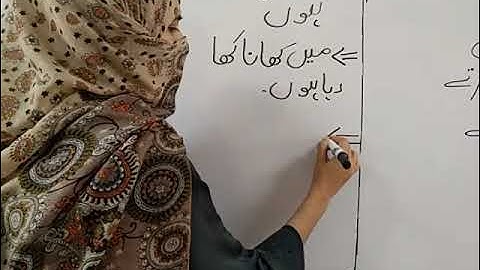 ہوں
میں کھانا کھا
رہا ہوں۔
تے